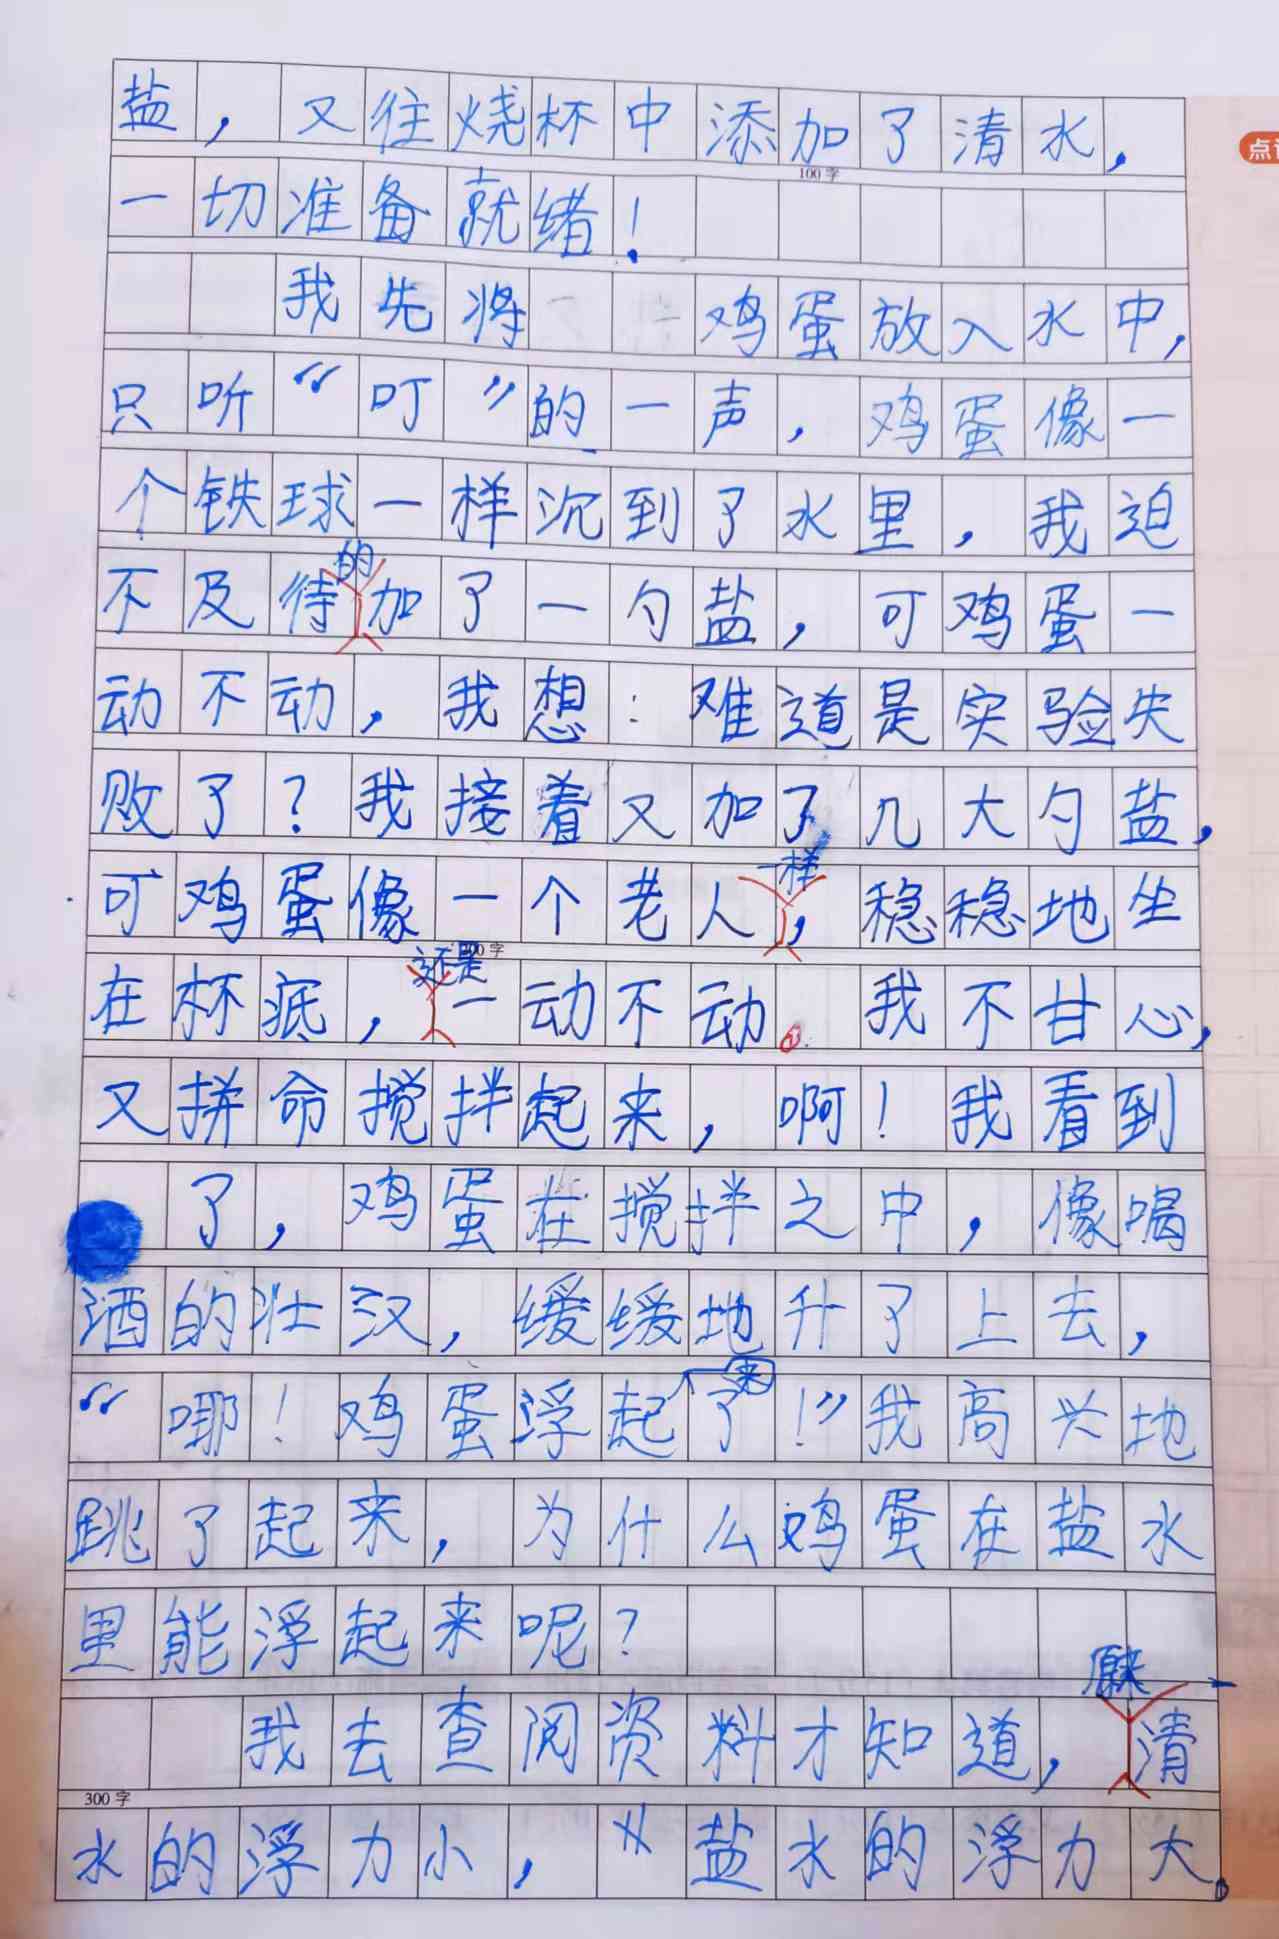 盐，又往烧杯中添加了清水，
点
100字
一切准备就绪！
我先将鸡蛋放入水中，
只听“叮”的一声，鸡蛋像一
个铁球一样沉到了水里，我迫
不及待的加了一勺盐，可鸡蛋一
动不动，我想：难道是实验失
败了？我接着又加了几大勺盐，
可鸡蛋像一个老人一样，稳稳地坐
在杯底，还是一动不动。我不甘心，
又拼命搅拌起来，啊！我看到
了，鸡蛋在搅拌之中，像喝
酒的壮汉，缓缓地升了上去，
“哪！鸡蛋浮起来了！”我高兴地
跳了起来，为什么鸡蛋在盐水
里能浮起来呢？
我去查阅资料才知道，原来清
300字
水的浮力小，盐水的浮力大。